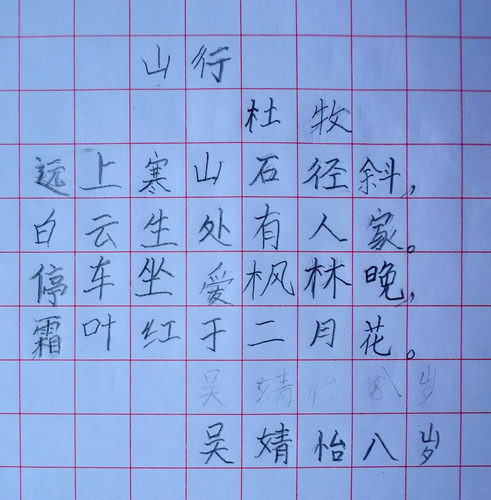 山行
杜牧
远上寒山石径斜，
白云生处有人家。
停车坐爱枫林晚，
霜叶红于二月花。
吴婧怡八岁
吴婧怡八岁